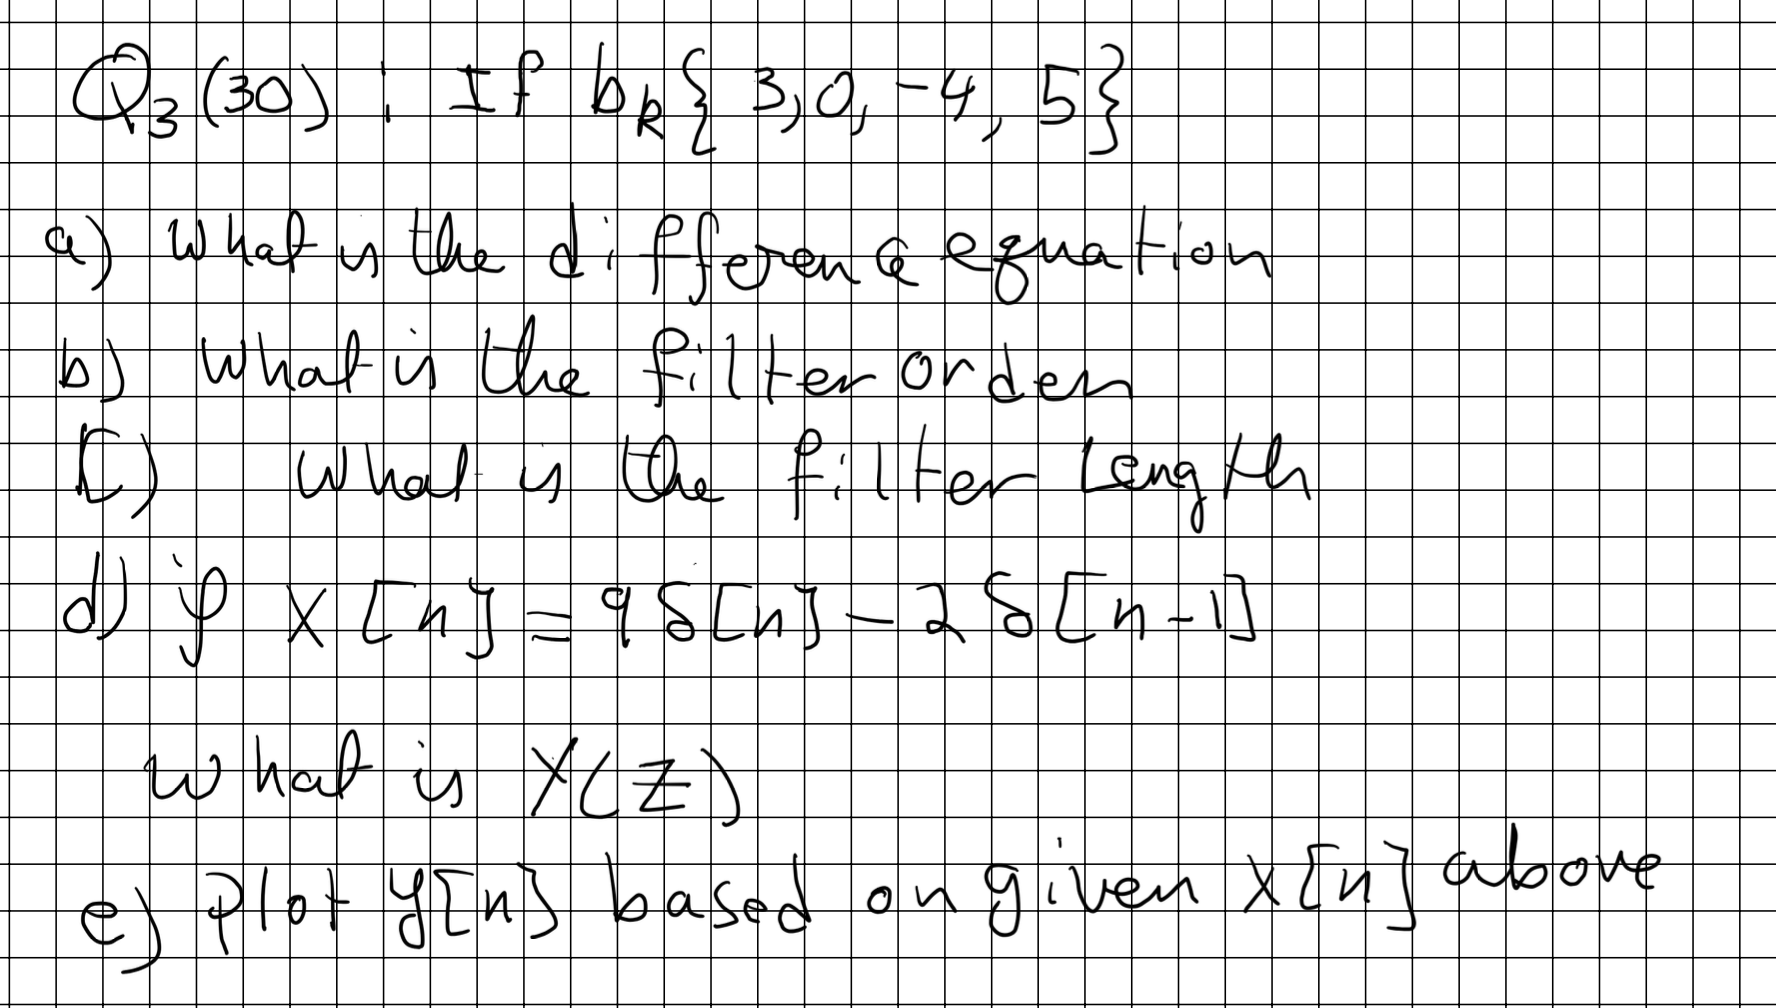 Q3 (30) : If bk{ 3, 0, -4, 5}
a) What is the difference equation
b) What is the filter order
C) What is the filter Length
d) if x[n] = 9 δ[n] - 2 δ[n-1]
What is Y(Z)
e) Plot y[n] based on given x[n] above